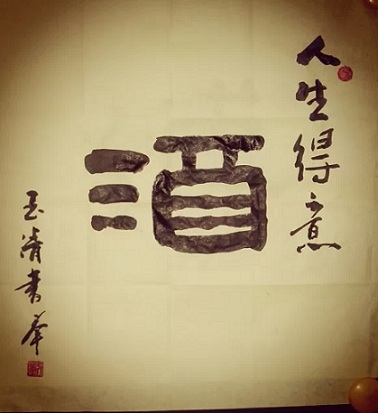 人生得意
酒
玉清書